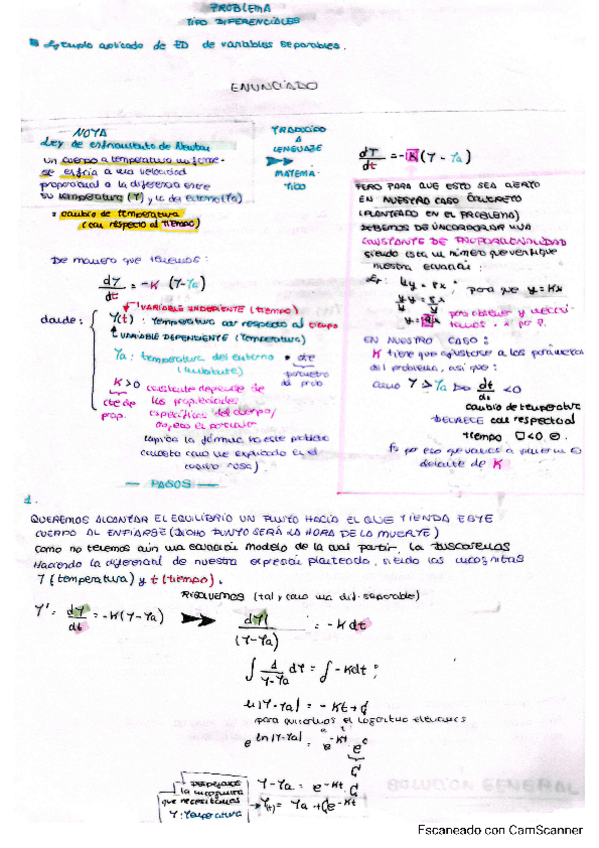 PROBLEMA
TIPO DIFERENCIALES
Ejemplo aplicado de ED de variables separables.
ENUNCIADO
NOTA
Ley de enfriamiento de Newton
un cuerpo a temperatura uniforme
se enfría a una velocidad
proporcional a la diferencia entre
su temperatura (T) y la del externo (Ta)
= cambio de temperatura
(con respecto al tiempo)
TRADUCIDO
A
LENGUAJE
MATEMA-
TICO
dT/dt = -K (T - Ta)
PERO PARA QUE ESTO SEA CIERTO
EN NUESTRO CASO CONCRETO
(PLANTEADO EN EL PROBLEMA)
DEBEMOS DE INCORPORAR UNA
CONSTANTE DE PROPORCIONALIDAD
siendo esta un número que verifique
nuestra ecuación:
para que y = Kx
EN NUESTRO CASO:
K tiene que ajustarse a los parámetros
del problema, así que:
como T > Ta
dt
< 0
cambio de temperatura
DECRECE con respecto al
tiempo < 0
Es por eso que vamos a poner un
delante de K
De manera que tenemos:
dT/dt = -K (T - Ta)
donde:
VARIABLE INDEPENDIENTE (tiempo)
T(t): Temperatura con respecto al tiempo
VARIABLE DEPENDIENTE (temperatura)
Ta: temperatura del entorno • cte
(ambiente)
parámetro
del prob
K > 0 constante depende de
cte de las propiedades
prop. específicas del cuerpo/
— PASOS —
1.
QUEREMOS ALCANZAR EL EQUILIBRIO UN PUNTO HACIA EL QUE TIENDA ESTE
CUERPO AL ENFIARSE (DICHO PUNTO SERÁ LA HORA DE LA MUERTE)
como no tenemos aún una ecuación modelo de la cual partir, la buscaremos
Haciendo la diferencial de nuestra expresión planteada, siendo las incógnitas
T (temperatura) y t (tiempo).
RESOLVEMOS (tal y como una dif. separable)
T' = dT/dt = -K(T - Ta)
dT/(T - Ta) = -K dt
∫ d/T-Ta dT = ∫ -Kdt ;
ln|T - Ta| = -Kt + C
para quitarnos el logaritmo elevamos
e^ln|T-Ta| = e^-Kt · e^c
C
T - Ta = e^-Kt · C
DESPEJAMOS
la incógnita
que necesitamos
T: Temperatura
T(t) = Ta + C e^-Kt
SOLUCIÓN GENERAL
Escaneado con CamScanner